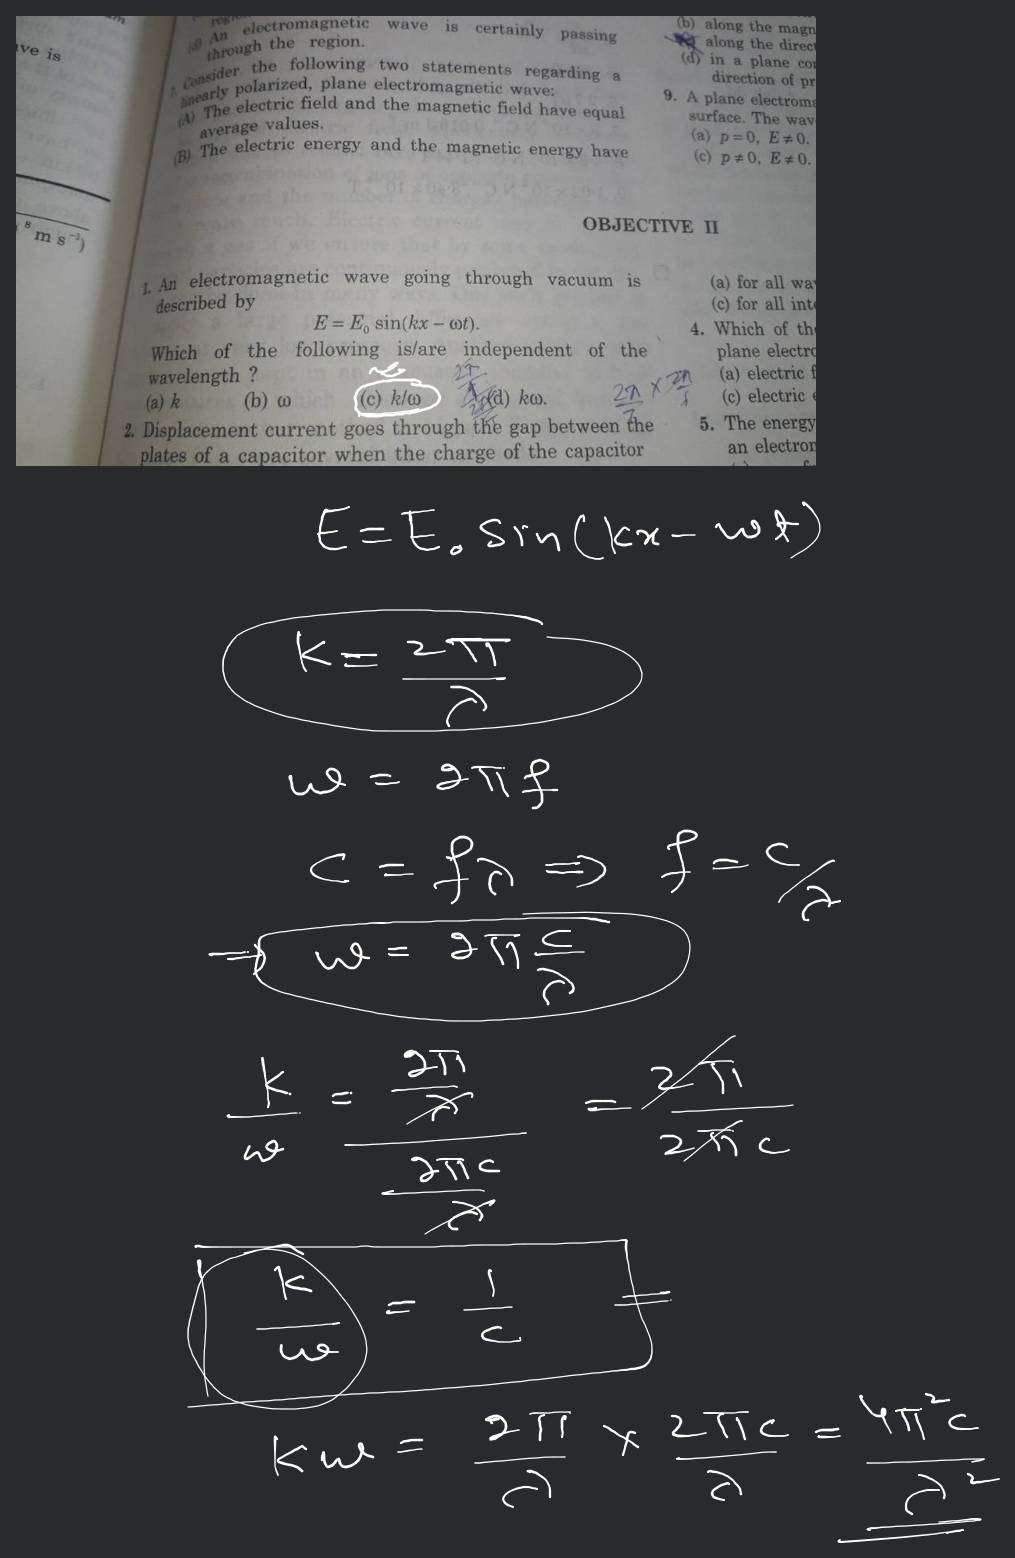 ve is
8 m s⁻¹)
(d) An electromagnetic wave is certainly passing
through the region.
Consider the following two statements regarding a
linearly polarized, plane electromagnetic wave:
(A) The electric field and the magnetic field have equal
average values.
(B) The electric energy and the magnetic energy have
(b) along the magn
along the direct
(d) in a plane co
direction of pr
9. A plane electroma
surface. The wav
(a) p = 0, E ≠ 0.
(c) p ≠ 0, E ≠ 0.
OBJECTIVE II
1. An electromagnetic wave going through vacuum is
described by
E = E₀ sin(kx − ωt).
Which of the following is/are independent of the
wavelength ?
(a) k (b) ω (c) k/ω (d) kω.
2π/λ × 2π/λ
2. Displacement current goes through the gap between the
plates of a capacitor when the charge of the capacitor
(a) for all wav
(c) for all inte
4. Which of the
plane electro
(a) electric f
(c) electric e
5. The energy
an electron
E = E₀ sin(kx − wt)
k = 2π/λ
w = 2πf
c = fλ ⇒ f = c/λ
⇒ w = 2π c/λ
k/w = (2π/λ)/(2πc/λ) = 2π/2πc
k/w = 1/c
kw = 2π/λ × 2πc/λ = 4π²c/λ²